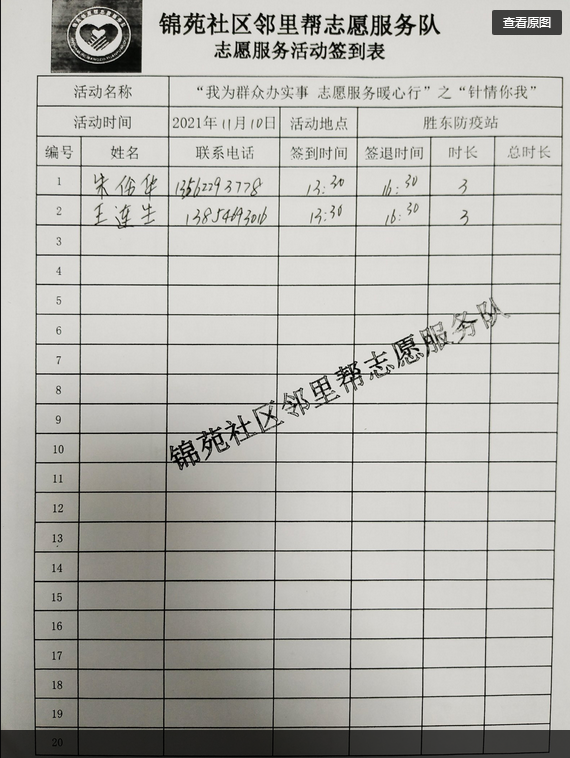 查看原图
锦苑社区邻里帮志愿服务队
志愿服务活动签到表
活动名称 “我为群众办实事 志愿服务暖心行”之“针情你我”
活动时间 2021年11月10日 活动地点 胜东防疫站
编号 姓名 联系电话 签到时间 签退时间 时长 总时长
1 朱俗华 13562293778 13:30 16:30 3
2 王连生 13854693016 13:30 16:30 3
3
4
5
6
7
8
9
10
11
12
13
14
15
16
17
18
19
20
锦苑社区邻里帮志愿服务队